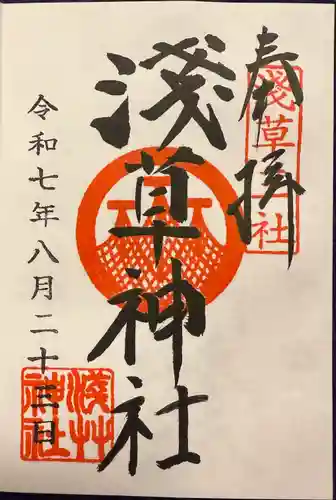 奉拝
淺草社
淺草神社
令和七年八月二十三日
淺草神社